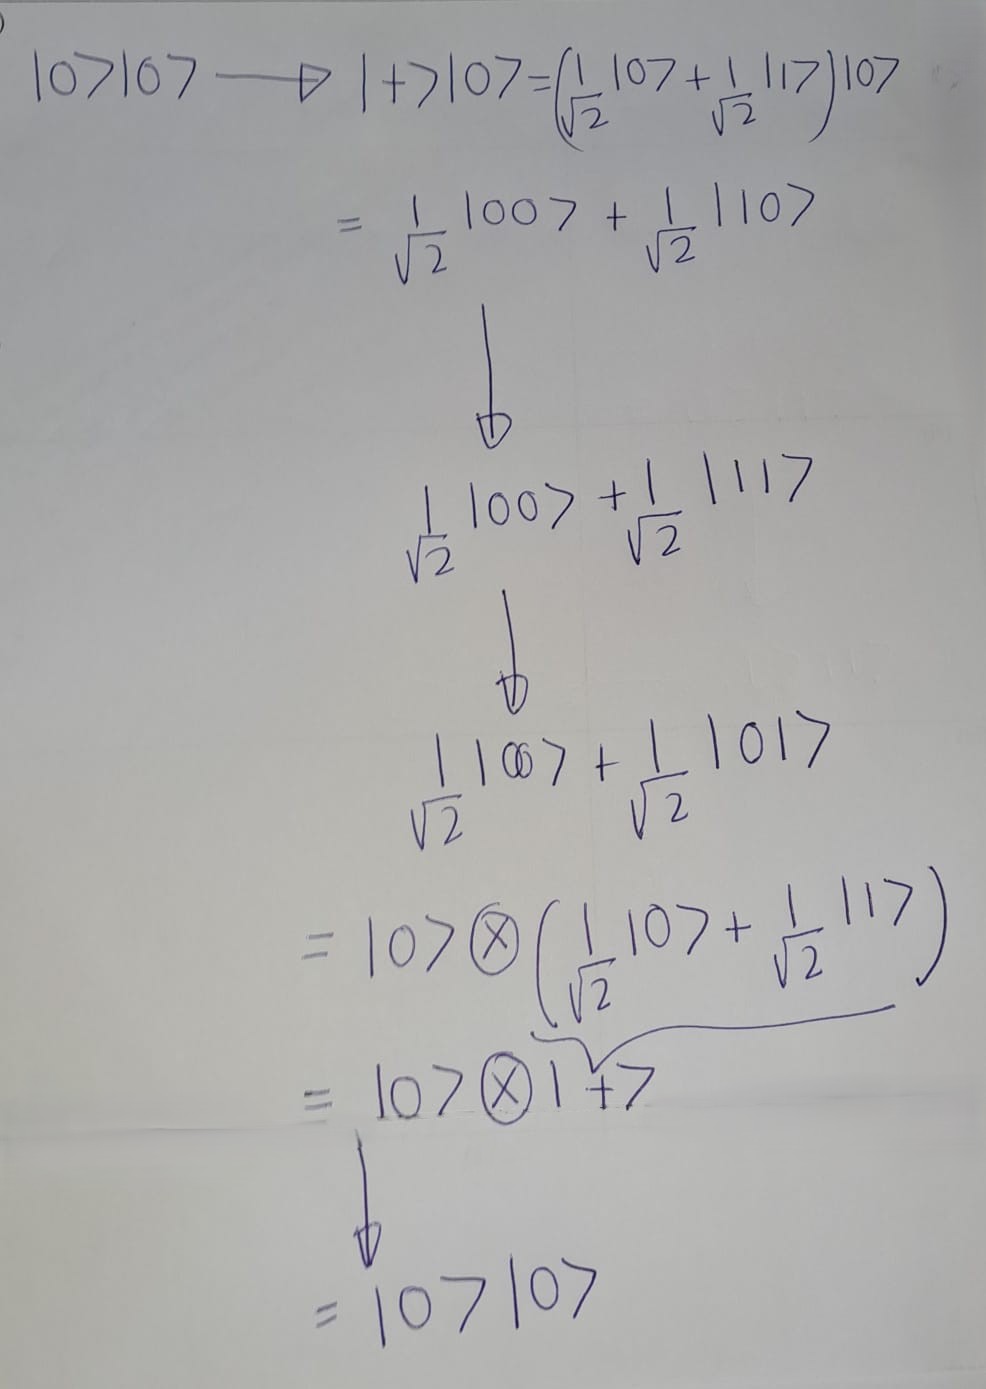 )
|0>|0> → |+>|0> = (1/√2 |0> + 1/√2 |1>)|0>
= 1/√2 |00> + 1/√2 |10>
↓
1/√2 |00> + 1/√2 |11>
↓
1/√2 |00> + 1/√2 |01>
= |0> ⊗ (1/√2 |0> + 1/√2 |1>)
= |0> ⊗ |+>
↓
= |0>|0>